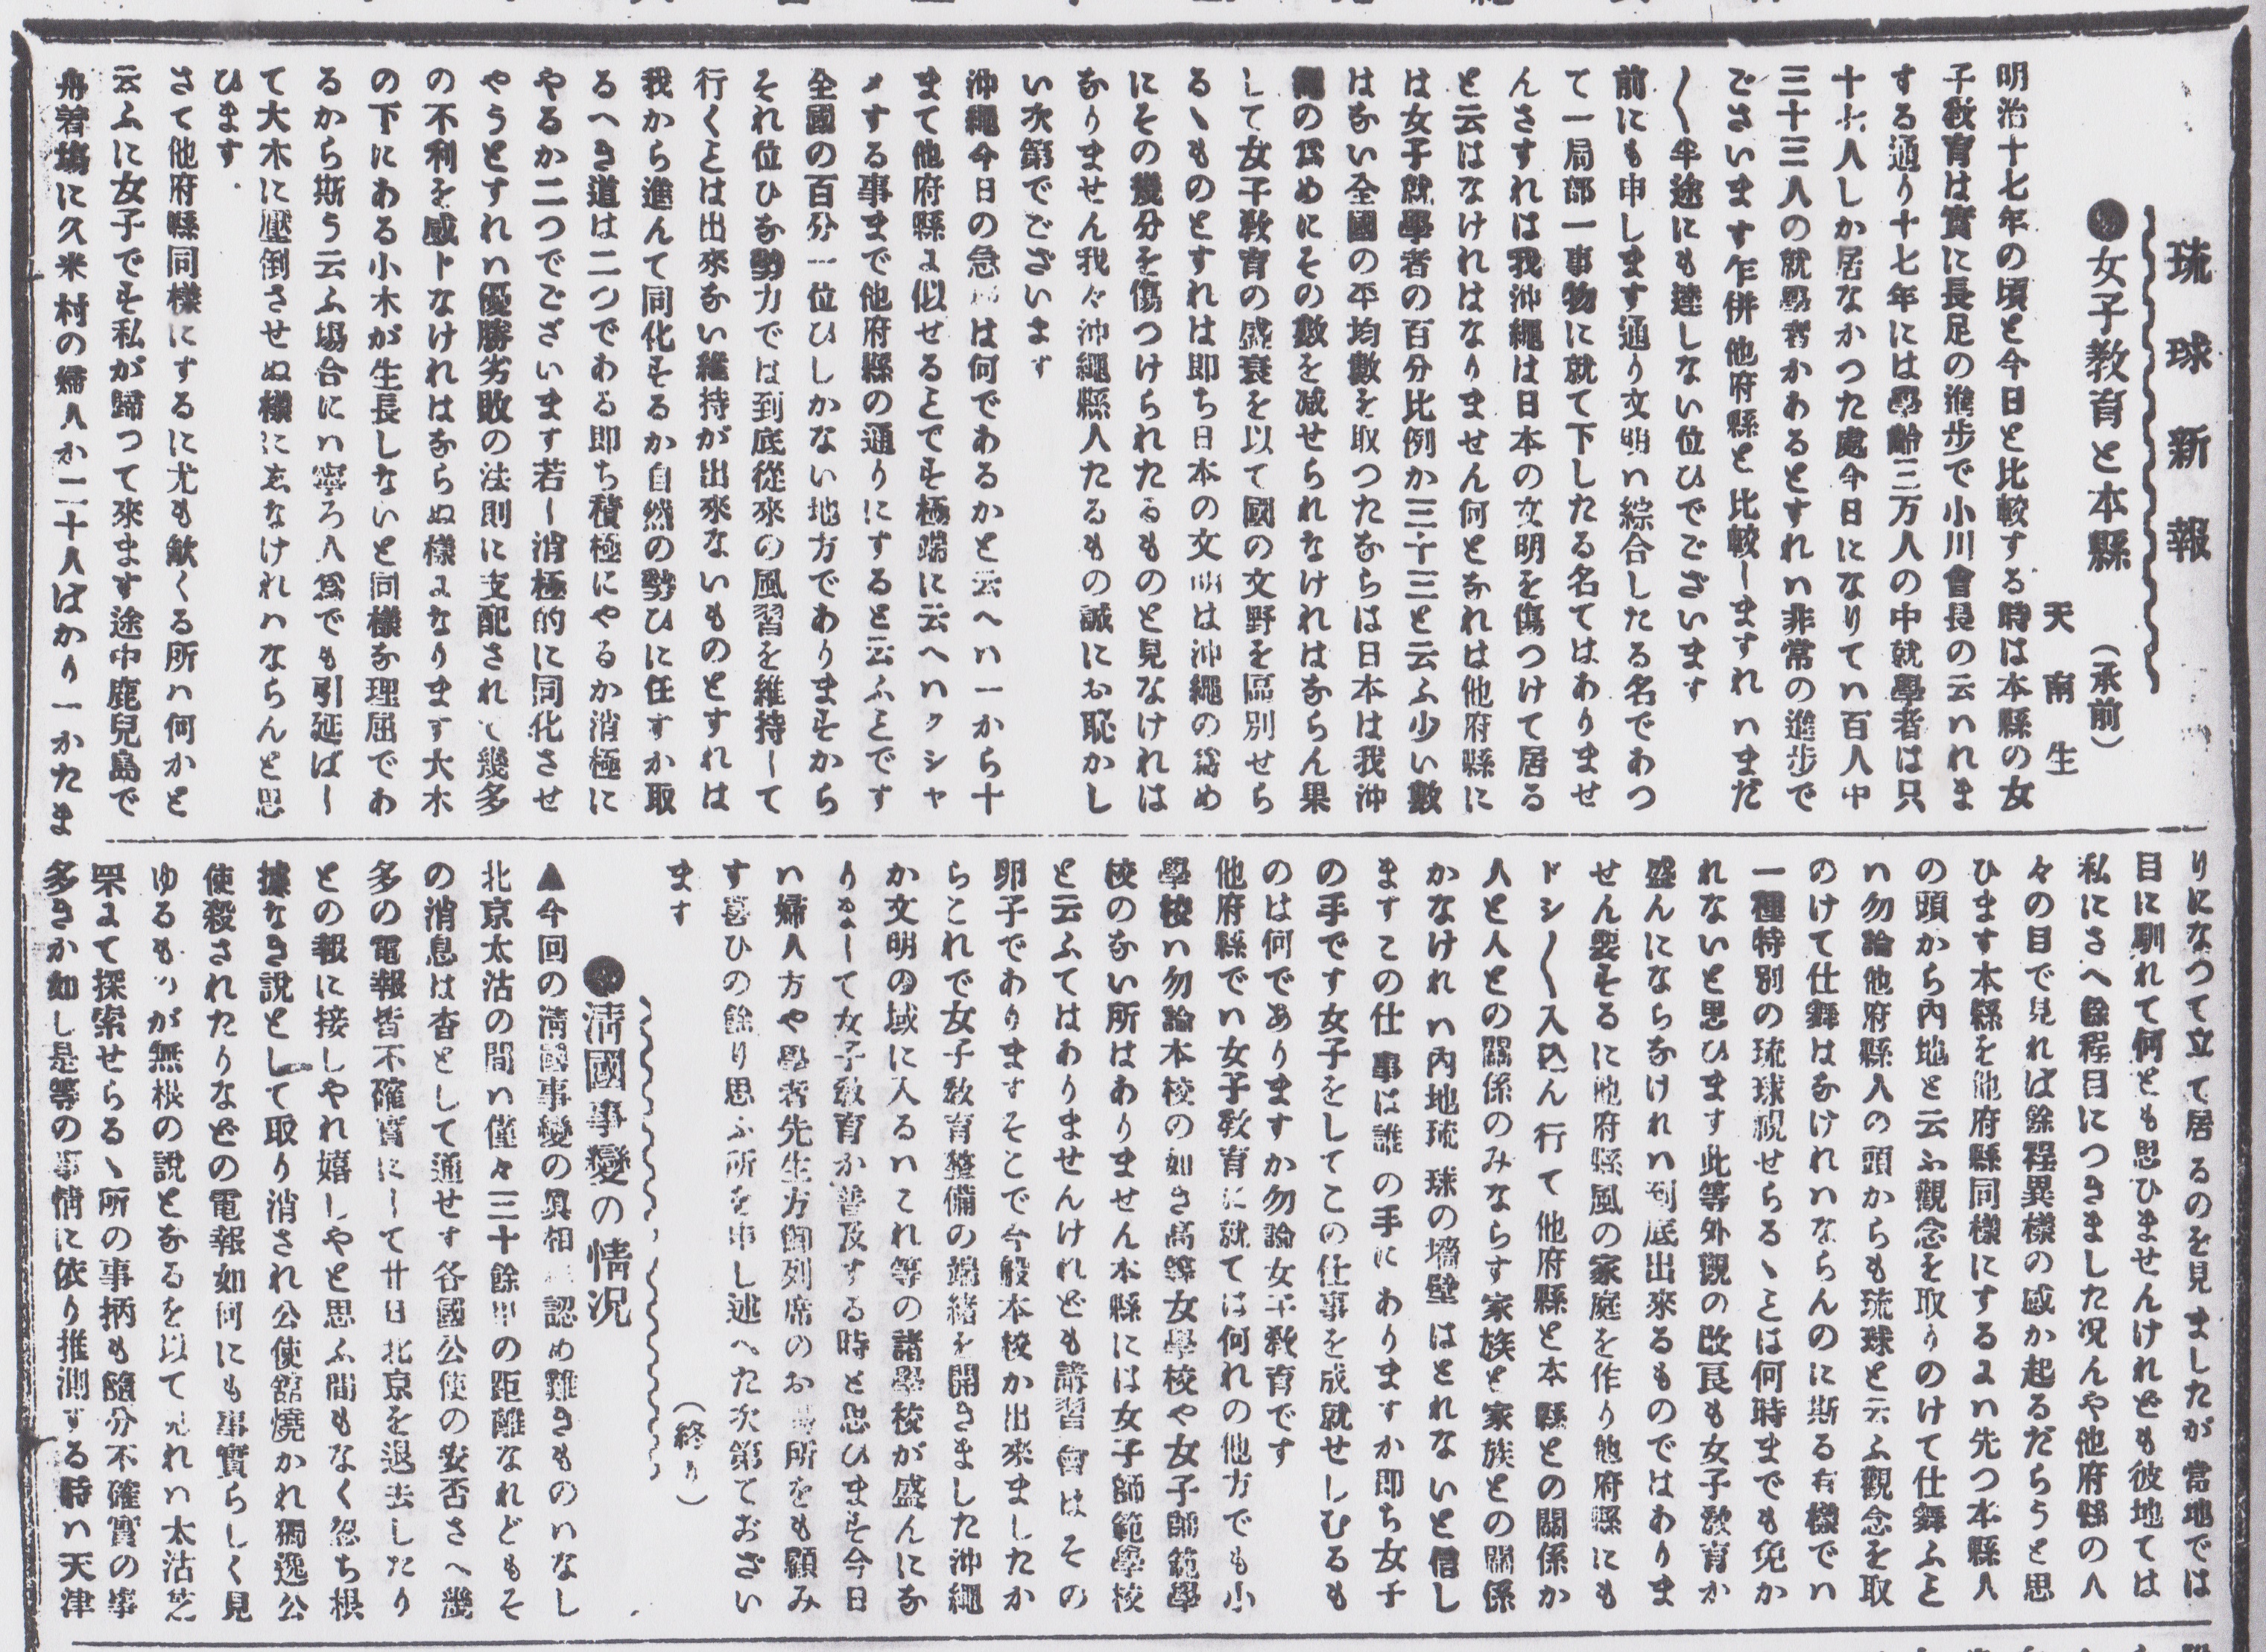 琉球新報
●女子敎育と本縣 (承前)
天南生
明治十七年の頃と今日と比較する時は本縣の女
子敎育は實に長足の進步で小川會長の云ハれま
する通り十七年には學齡三万人の中就學者は只
十七人しか居なかつた處今日になりてハ百人中
三十三人の就學者かあるとすれハ非常の進步で
ございます乍併他府縣と比較しますれハまだ
〱半途にも達しない位ひでございます
前にも申します通り文明ハ綜合したる名であつ
て一局部一事物に就て下したる名てはありませ
んさすれは我沖繩は日本の文明を傷つけて居る
と云はなけれはなりません何となれは他府縣に
は女子就學者の百分比例か三十三と云ふ少い數
はない全國の平均數を取つたならは日本は我沖
繩の爲めにその數を减せられなけれはならん果
して女子敎育の盛衰を以て國の文野を區別せら
るゝものとすれは即ち日本の文明は沖繩の爲め
にその幾分を傷つけられたるものと見なけれは
なりません我々沖繩縣人たるもの誠にお恥かし
い次第でございます
沖繩今日の急務は何であるかと云へハ一から十
まて他府縣に似せることです極端に云へハクシャ
メする事まで他府縣の通りにすると云ふことです
全國の百分一位ひしかない地方でありますから
それ位ひな勢力では到底從來の風習を維持して
行くことは出來ない維持が出來ないものとすれは
我から進んて同化するか自然の勢ひに任すか取
るへき道は二つである即ち積極にやるか消極に
やるか二つでございます若し消極的に同化させ
やうとすれハ優勝劣敗の法則に支配されて幾多
の不利を感トなけれはならぬ樣になります大木
の下にある小木が生長しないと同樣な理屈であ
るから斯う云ふ場合にハ寧ろ人爲でも引延ばし
て大木に壓倒させぬ樣にゑなけれハならんと思
ひます
さて他府縣同樣にするに尤も歉くる所ハ何かと
云ふに女子です私が歸つて來ます途中鹿兒島で
舟着塲に久米村の婦人か二十人ばかり一かたま
りになつて立て居るのを見ましたが當地では
目に馴れて何とも思ひませんけれども彼地ては
私にさへ餘程目につきました况んや他府縣の人
々の目で見れば餘程異樣の感か起るだらうと思
ひます本縣を他府縣同樣にするにハ先つ本縣人
の頭から內地と云ふ觀念を取りのけて仕舞ふこと
ハ勿論他府縣人の頭からも琉球と云ふ觀念を取
のけて仕舞はなけれハならんのに斯る有樣でハ
一種特別の琉球視せらるゝことは何時までも免か
れないと思ひます此等外觀の改良も女子敎育か
盛んにならなけれハ到底出來るものではありま
せん要するに他府縣風の家庭を作り他府縣にも
ドシ〱入込ん行て他府縣と本縣との關係か
人と人との關係のみならす家族と家族との關係
かなけれハ內地琉球の墻壁はとれないと信し
ますこの仕事は誰の手にありますか即ち女子
の手です女子をしてこの仕事を成就せしむるも
のは何でありますか勿論女子敎育です
他府縣でハ女子敎育に就ては何れの他方でも小
學校ハ勿論本校の如き高等女學校や女子師範學
校のない所はありません本縣には女子師範學校
と云ふてはありませんけれども講習會はその
卵子でありますそこで今般本校か出來ましたか
らこれで女子敎育整備の端緒を開きました沖繩
か文明の域に入るハこれ等の諸學校が盛んにな
りまして女子敎育か普及する時と思ひます今日
ハ婦人方や學者先生方御列席のお塲所をも顧み
す喜ひの餘り思ふ所を申し述へた次第でござい
ます (終り)
●淸國事變の情况
▲今回の淸國事變の眞相 認め難きものハなし
北京太沽の間ハ僅々三十餘里の距離なれどもそ
の消息は杳として通せす各國公使の安否さへ幾
多の電報皆不確實にして廿日北京を退去したり
との報に接しやれ嬉しやと思ふ間もなく忽ち根
據なき說として取り消され公使舘燒かれ獨逸公
使殺されたりなどの電報如何にも事實らしく見
ゆるものが無根の說となるを以て見れハ太沽芝
罘にて探索せらるゝ所の事柄も隨分不確實の事
多きか如し是等の事情に依り推測する時ハ天津